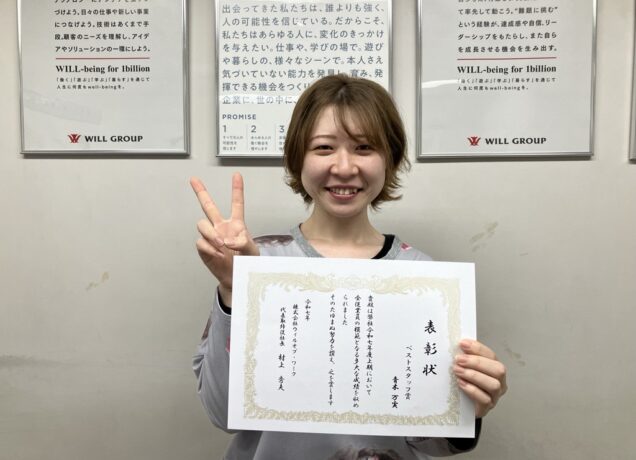 づけよう。日々の仕事や新しい事業
につなげよう。技術はあくまで手
段。顧客のニーズを理解し、アイデ
アやソリューションの一種にしよう。
WILL-being for 1billion
「働く」「遊ぶ」「学ぶ」「暮らす」を通じて
人生に何度もwell-beingを。
WILL GROUP
出会ってきた私たちは、誰よりも強く、
人の可能性を信じている。だからこそ、
私たちはあらゆる人に、変化のきっかけ
を与えたい。仕事や、学びの場で。遊び
や暮らしの、様々なシーンで。本人さえ
気づいていない能力を発見し、育み、発
揮できる機会をつくり
企業に、世の中に、
PROMISE
1
2
3
て率先して動こう。“難題に挑む”
という経験が、達成感や自信、リー
ダーシップをもたらし、また自ら
を成長させる機会を生み出す。
WILL-being for 1billion
「働く」「遊ぶ」「学ぶ」「暮らす」を通じて
人生に何度もwell-beingを。
WILL GROUP
表彰状
ベストスタッフ賞
青木 万実
貴殿は弊社令和七年度上期において
全従業員の模範となる多大な成績を収め
られました
そのたゆまぬ努力を讃え、之を賞します
令和七年
株式会社ウィルオブ・ワーク
代表取締役社長 村上 秀夫